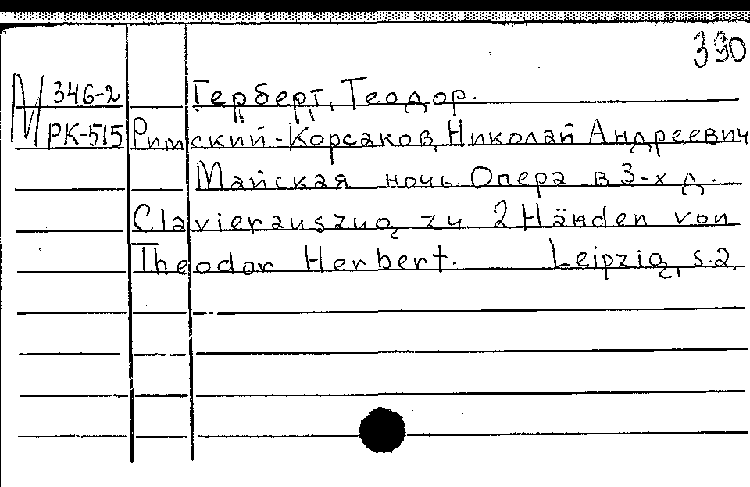 390
М 346-2
РК-515
Герберт, Теодор.
Римский-Корсаков, Николай Андреевич
Майская ночь. Опера в 3-х д.
Clavierauszug zu 2 Händen von
Theodor Herbert. Leipzig, s.a.